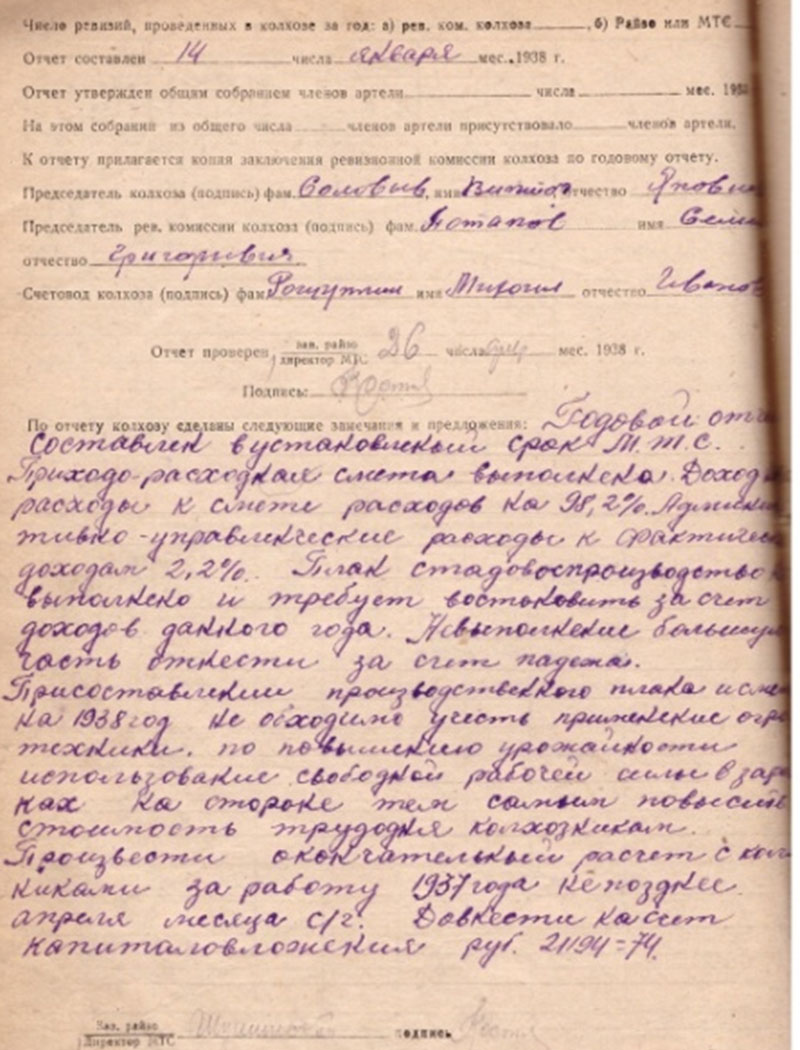 Число ревизий, проведенных в колхозе за год: а) рев. ком. колхоза, б) Райзо или МТС
Отчет составлен 14 числа января мес. 1938 г.
Отчет утвержден общим собранием членов артели числа мес. 193
На этом собрании из общего числа членов артели присутствовало членов артели.
К отчету прилагается копия заключения ревизионной комиссии колхоза по годовому отчету.
Председатель колхоза (подпись) фам. Соловьев, имя отчество
Председатель рев. комиссии колхоза (подпись) фам. Потапов имя Семе
отчество Григорьевич
Счетовод колхоза (подпись) фам. имя Михаил отчество Иванов
Отчет проверен зав. райзо 26 числа мес. 1938 г.
директор МТС
Подпись:
По отчету колхозу сделаны следующие замечания и предложения: Годовой отч
составлен в установленый срок М.Т.С.
Приходо-расходная смета выполнена. Доход
расходы к смете расходов на 98,2%. Админис
тивно-управленческие расходы к фактичес
доходам 2,2%. План стадовоспроизводство н
выполнено и требует востоновить за счет
доходов данного года. Невыполнение большую
часть отнести за счет падежа.
Присоставлении производственного плана и сме
на 1938 год не обходимо учесть применение агро
техники. по повышению урожайности
использование свободной рабочей силы в зара
ках на стороне тем самым повысить
стоимость трудодня колхозникам.
Произвести окончательный расчет с кол
никами за работу 1937 года непозднее
апреля месяца с/г. Довнести на счет
капиталовложения руб. 21194=74.
Зав. райзо подпись
Директор МТС